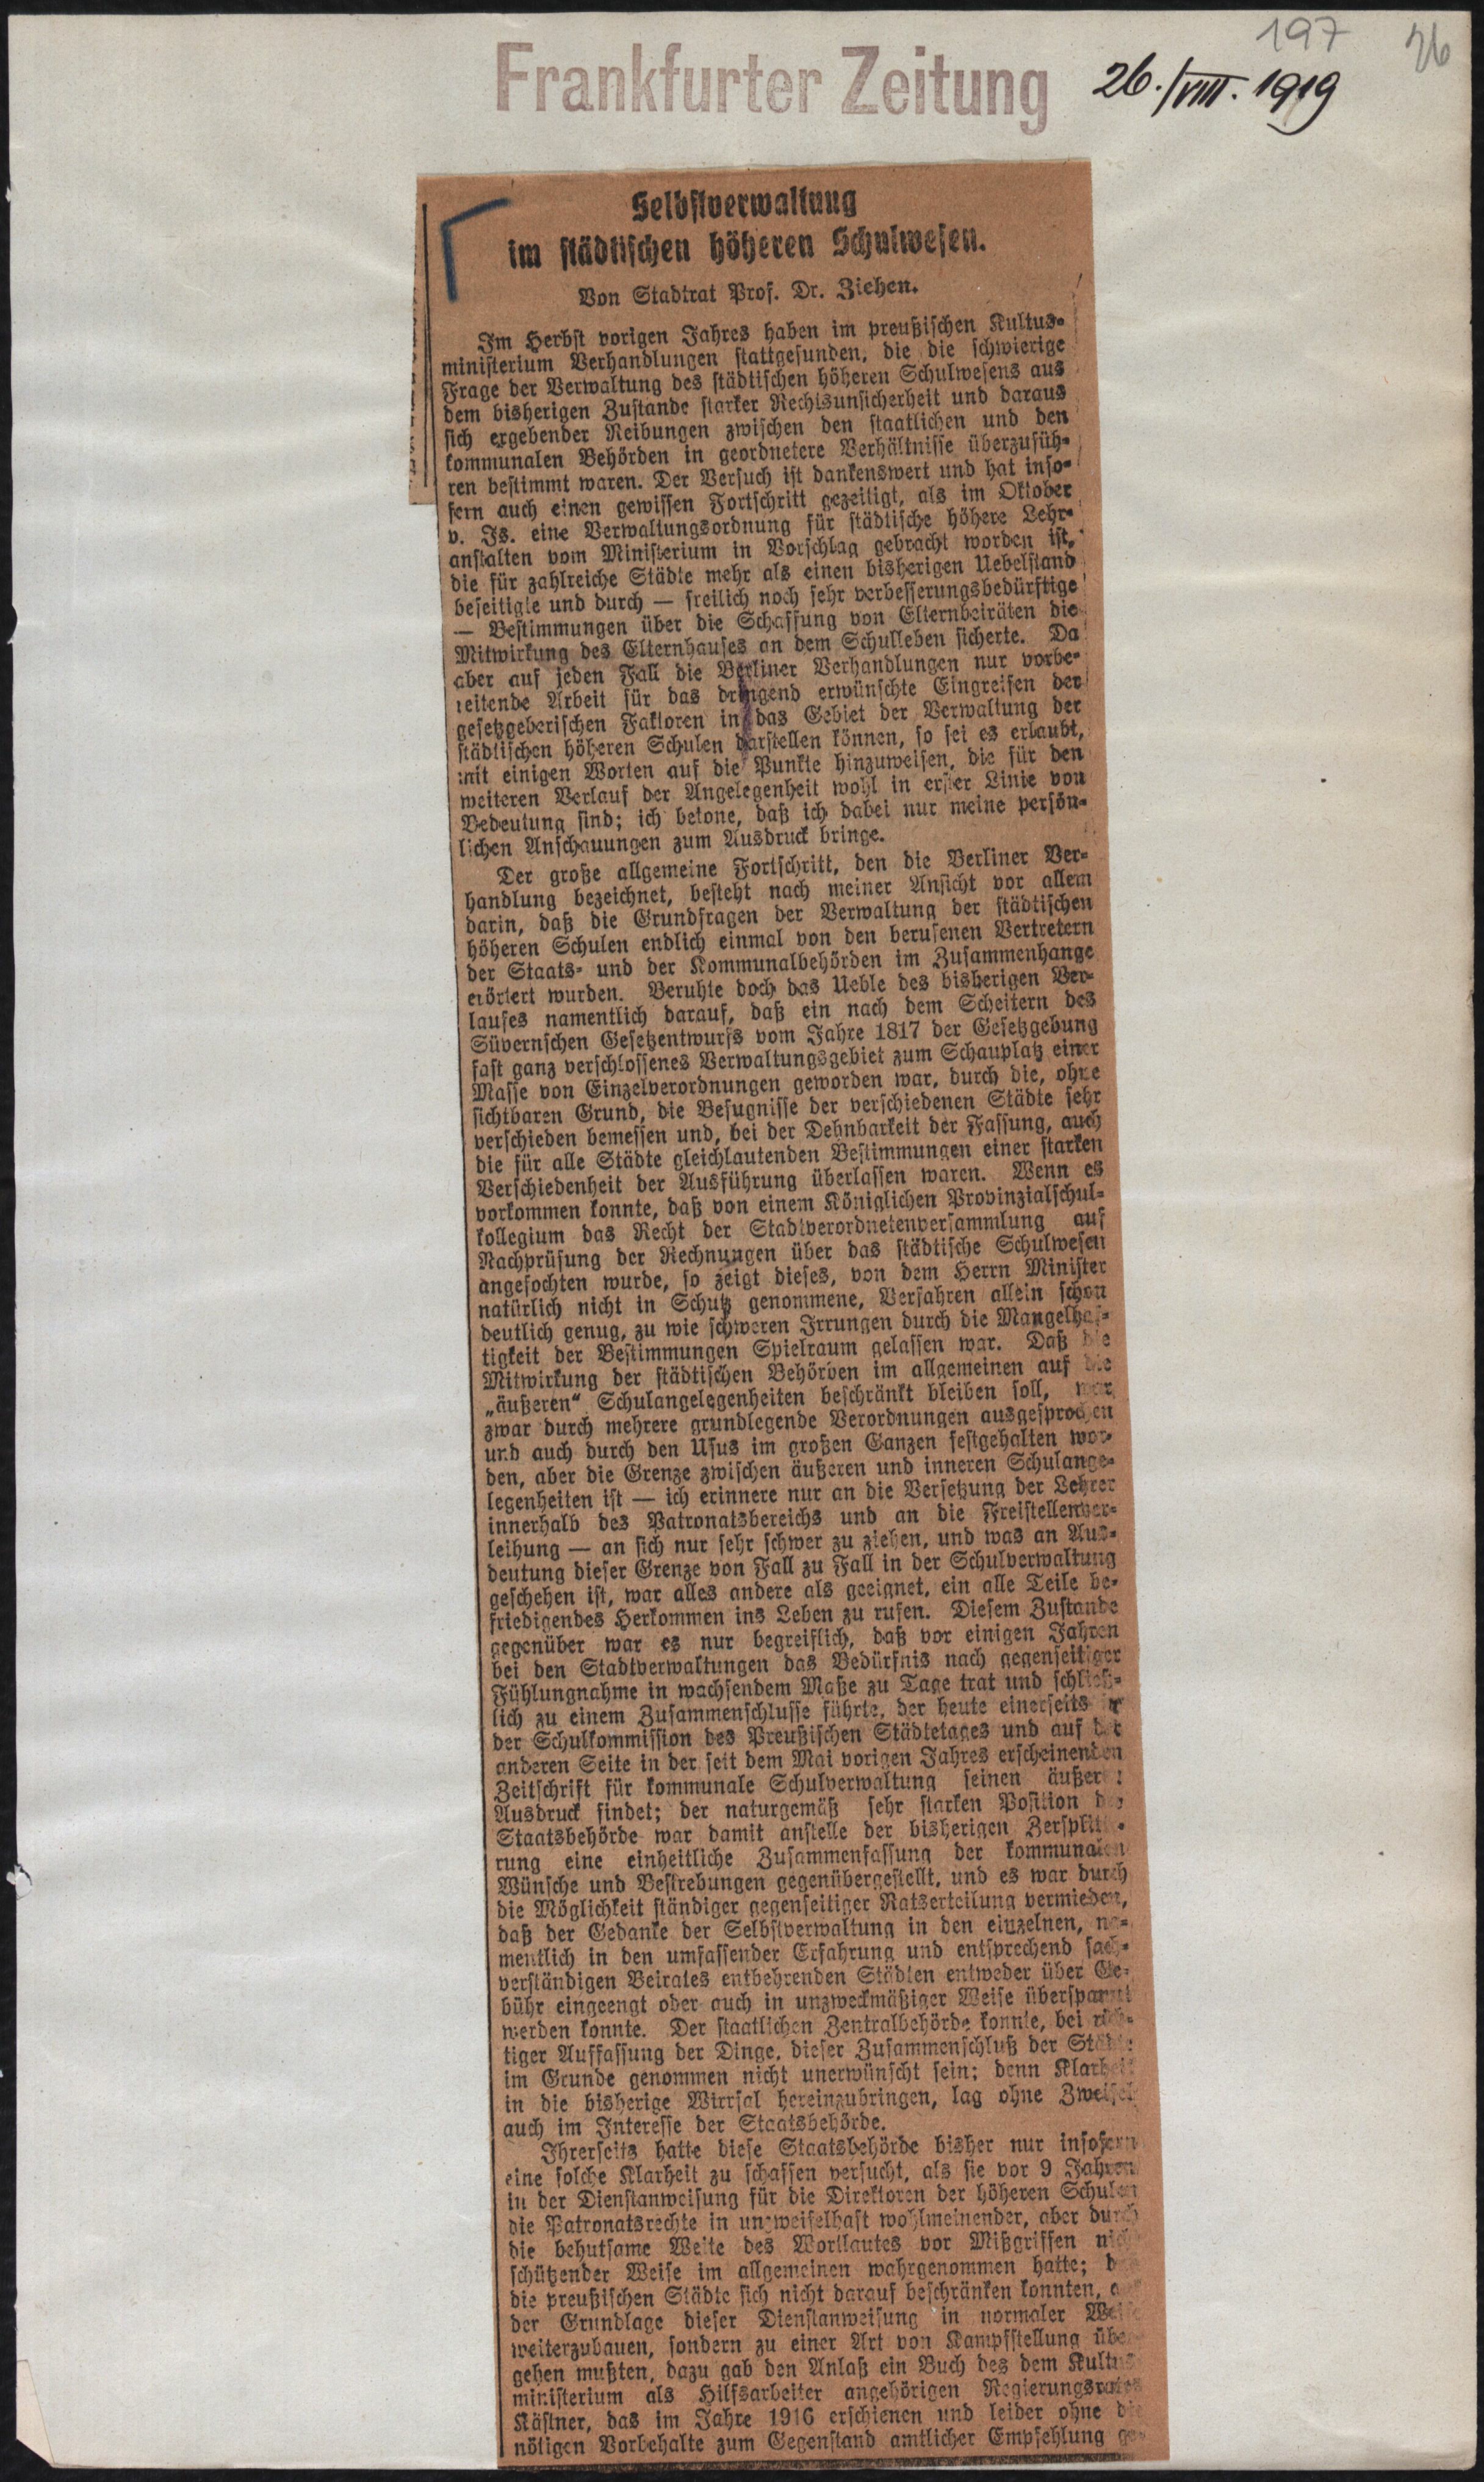 197
26
Frankfurter Zeitung
26./VIII. 1919
Selbstverwaltung
im städtischen höheren Schulwesen.
Von Stadtrat Prof. Dr. Ziehen.
Im Herbst vorigen Jahres haben im preußischen Kultus-
ministerium Verhandlungen stattgefunden, die die schwierige
Frage der Verwaltung des städtischen höheren Schulwesens aus
dem bisherigen Zustande starker Rechtsunsicherheit und daraus
sich ergebender Reibungen zwischen den staatlichen und den
kommunalen Behörden in geordnetere Verhältnisse überzufüh-
ren bestimmt waren. Der Versuch ist dankenswert und hat inso-
fern auch einen gewissen Fortschritt gezeitigt, als im Oktober
v. Js. eine Verwaltungsordnung für städtische höhere Lehr-
anstalten vom Ministerium in Vorschlag gebracht worden ist,
die für zahlreiche Städte mehr als einen bisherigen Uebelstand
beseitigte und durch — freilich noch sehr verbesserungsbedürftige
— Bestimmungen über die Schaffung von Elternbeiräten die
Mitwirkung des Elternhauses an dem Schulleben sicherte. Da
aber auf jeden Fall die Berliner Verhandlungen nur vorbe-
reitende Arbeit für das dringend erwünschte Eingreifen der
gesetzgeberischen Faktoren in das Gebiet der Verwaltung der
städtischen höheren Schulen darstellen können, so sei es erlaubt,
mit einigen Worten auf die Punkte hinzuweisen, die für den
weiteren Verlauf der Angelegenheit wohl in erster Linie von
Bedeutung sind; ich betone, daß ich dabei nur meine persön-
lichen Anschauungen zum Ausdruck bringe.
Der große allgemeine Fortschritt, den die Berliner Ver-
handlung bezeichnet, besteht nach meiner Ansicht vor allem
darin, daß die Grundfragen der Verwaltung der städtischen
höheren Schulen endlich einmal von den berufenen Vertretern
der Staats- und der Kommunalbehörden im Zusammenhange
erörtert wurden. Beruhte doch das Ueble des bisherigen Ver-
laufes namentlich darauf, daß ein nach dem Scheitern des
Süvernschen Gesetzentwurfs vom Jahre 1817 der Gesetzgebung
fast ganz verschlossenes Verwaltungsgebiet zum Schauplatz einer
Masse von Einzelverordnungen geworden war, durch die, ohne
sichtbaren Grund, die Befugnisse der verschiedenen Städte sehr
verschieden bemessen und, bei der Dehnbarkeit der Fassung, auch
die für alle Städte gleichlautenden Bestimmungen einer starken
Verschiedenheit der Ausführung überlassen waren. Wenn es
vorkommen konnte, daß von einem Königlichen Provinzialschul-
kollegium das Recht der Stadtverordnetenversammlung auf
Nachprüfung der Rechnungen über das städtische Schulwesen
angefochten wurde, so zeigt dieses, von dem Herrn Minister
natürlich nicht in Schutz genommene, Verfahren allein schon
deutlich genug, zu wie schweren Irrungen durch die Mangelhaf-
tigkeit der Bestimmungen Spielraum gelassen war. Daß die
Mitwirkung der städtischen Behörden im allgemeinen auf die
„äußeren“ Schulangelegenheiten beschränkt bleiben soll, war
zwar durch mehrere grundlegende Verordnungen ausgesprochen
und auch durch den Usus im großen Ganzen festgehalten wor-
den, aber die Grenze zwischen äußeren und inneren Schulange-
legenheiten ist — ich erinnere nur an die Versetzung der Lehrer
innerhalb des Patronatsbereichs und an die Freistellenver-
leihung — an sich nur sehr schwer zu ziehen, und was an Aus-
deutung dieser Grenze von Fall zu Fall in der Schulverwaltung
geschehen ist, war alles andere als geeignet, ein alle Teile be-
friedigendes Herkommen ins Leben zu rufen. Diesem Zustande
gegenüber war es nur begreiflich, daß vor einigen Jahren
bei den Stadtverwaltungen das Bedürfnis nach gegenseitiger
Fühlungnahme in wachsendem Maße zu Tage trat und schließ-
lich zu einem Zusammenschlusse führte, der heute einerseits in
der Schulkommission des Preußischen Städtetages und auf der
anderen Seite in der seit dem Mai vorigen Jahres erscheinenden
Zeitschrift für kommunale Schulverwaltung seinen äußeren
Ausdruck findet; der naturgemäß sehr starken Position der
Staatsbehörde war damit anstelle der bisherigen Zersplitte-
rung eine einheitliche Zusammenfassung der kommunalen
Wünsche und Bestrebungen gegenübergestellt, und es war durch
die Möglichkeit ständiger gegenseitiger Ratserteilung vermieden,
daß der Gedanke der Selbstverwaltung in den einzelnen, na-
mentlich in den umfassender Erfahrung und entsprechend sach-
verständigen Beirates entbehrenden Städten entweder über Ge-
bühr eingeengt oder auch in unzweckmäßiger Weise überspannt
werden konnte. Der staatlichen Zentralbehörde konnte, bei rich-
tiger Auffassung der Dinge, dieser Zusammenschluß der Städte
im Grunde genommen nicht unerwünscht sein; denn Klarheit
in die bisherige Wirrsal hereinzubringen, lag ohne Zweifel
auch im Interesse der Staatsbehörde.
Ihrerseits hatte diese Staatsbehörde bisher nur insofern
eine solche Klarheit zu schaffen versucht, als sie vor 9 Jahren
in der Dienstanweisung für die Direktoren der höheren Schulen
die Patronatsrechte in unzweifelhaft wohlmeinender, aber durch
die behutsame Weite des Wortlautes vor Mißgriffen nicht
schützender Weise im allgemeinen wahrgenommen hatte;
die preußischen Städte sich nicht darauf beschränken konnten,
der Grundlage dieser Dienstanweisung in normaler Weise
weiterzubauen, sondern zu einer Art von Kampfstellung über
gehen mußten, dazu gab den Anlaß ein Buch des dem Kultus
ministerium als Hilfsarbeiter angehörigen Regierungsrates
Kästner, das im Jahre 1916 erschienen und leider ohne die
nötigen Vorbehalte zum Gegenstand amtlicher Empfehlung